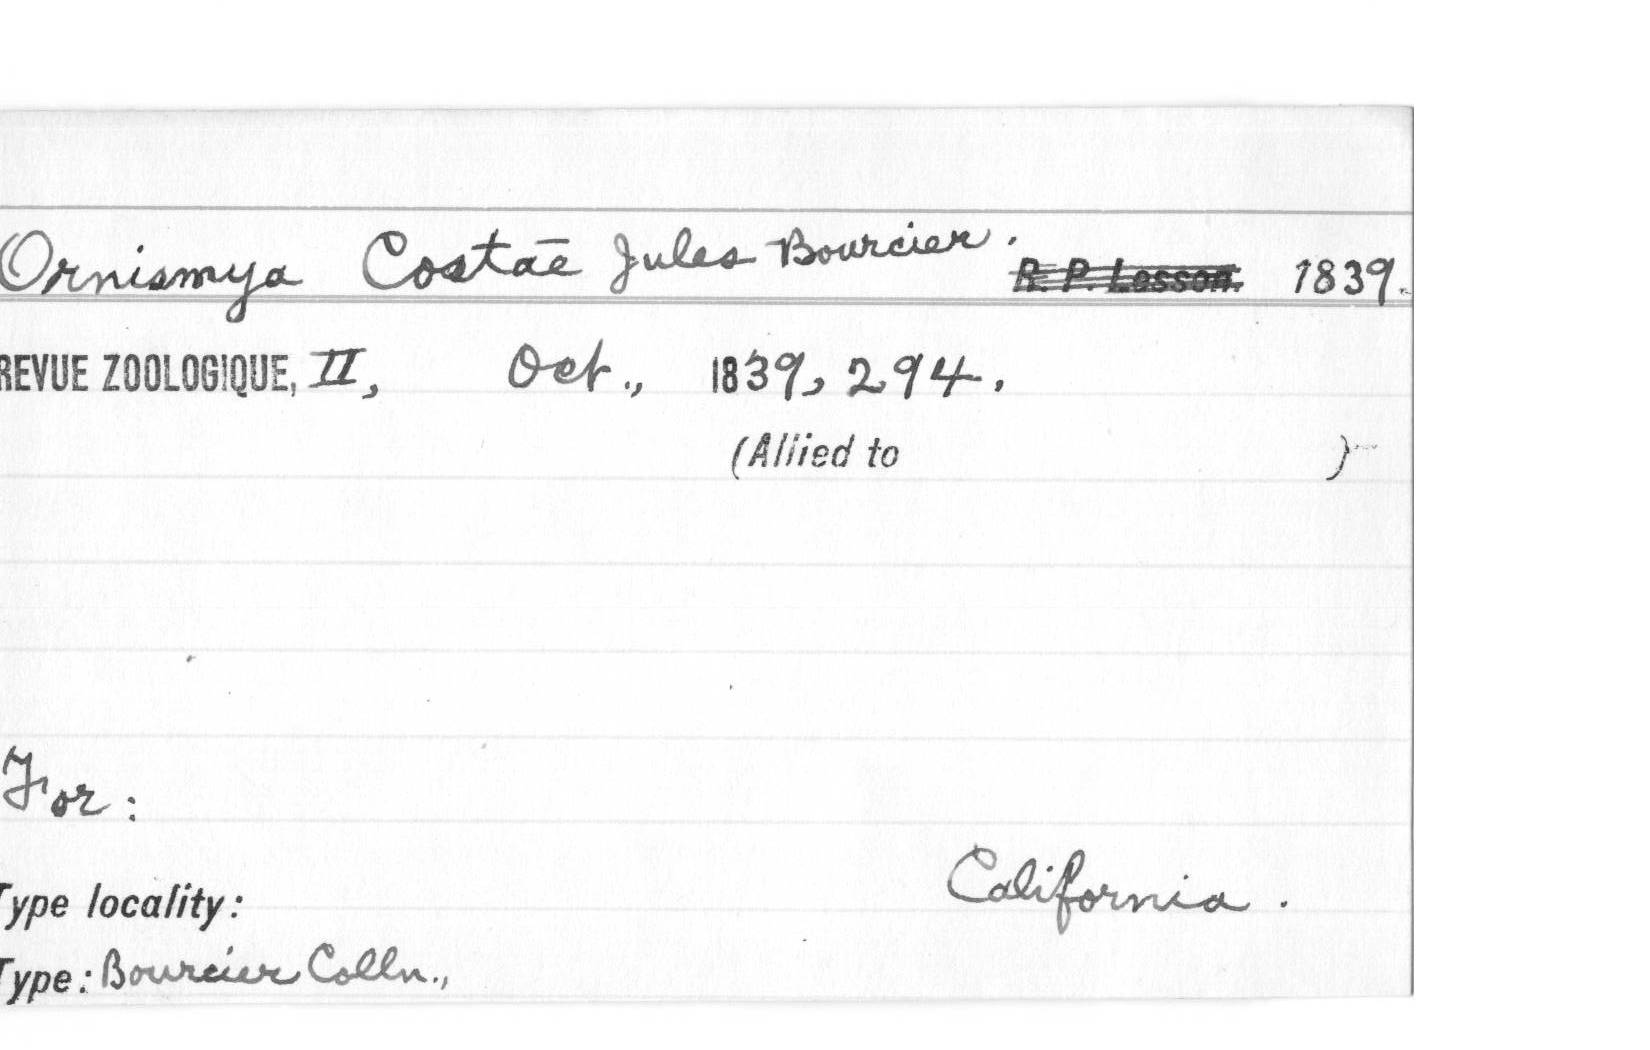 Ornismya Costae Jules Bourcier. R. P. Lesson. 1839.
REVUE ZOOLOGIQUE, II, Oct., 1839, 294.
(Allied to )
For:
Type locality: California.
Type: Bourcier Colln.,